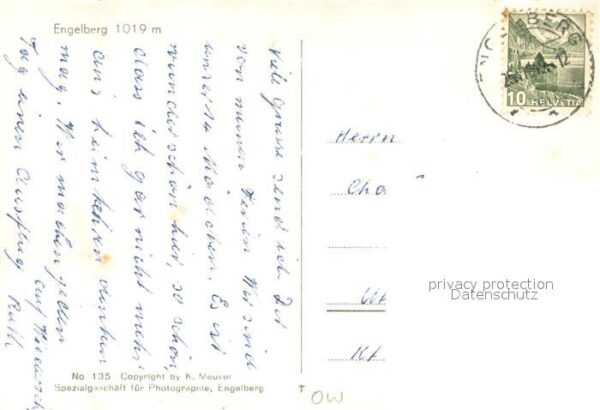 Engelberg 1019 m
Viele Grüsse send ich Dir
von meinen Ferien. Wir sind
unserer 14 Mädchen. Es ist
wunderschön hier, so schön,
dass ich gar nicht mehr
ans heimkehren denken
mag. Wir machen jeden
Tag einen Ausflug
auf Wiederseh
Ruth
No 135 Copyright by K. Meuser
Spezialgeschäft für Photographie, Engelberg
ENGELBERG
12
10 HELVETIA
Herrn
Cha
privacy protection
Datenschutz
T
OW